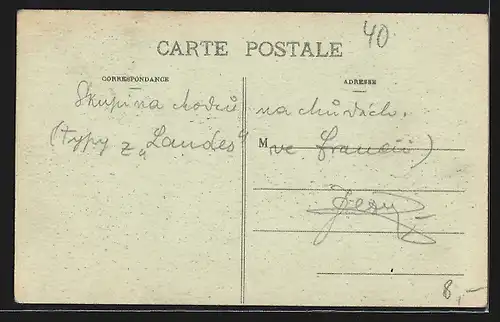 40
CARTE POSTALE
CORRESPONDANCE
ADRESSE
Skupina chodců na chůdách.
(typy z „Landes" M ve Francii)
8,-